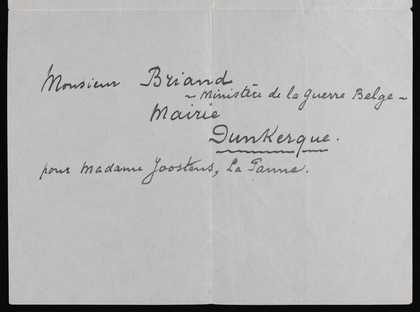 Monsieur Briand
- Ministère de la Guerre Belge -
Mairie
Dunkerque.
pour Madame Joostens, La Panne.